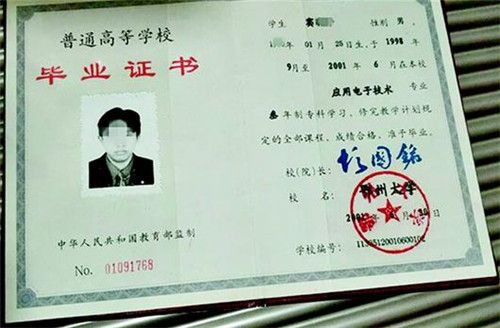 普通高等学校
毕业证书
中华人民共和国教育部监制
No. 01091768
学生 性别 男,
01月25日生,于1998
年9月至2001年6月在本校
应用电子技术 专业
叁年制专科学习,修完教学计划规
定的全部课程,成绩合格,准予毕业。
校(院)长:
校 名: 鄂州大学
学校编号: